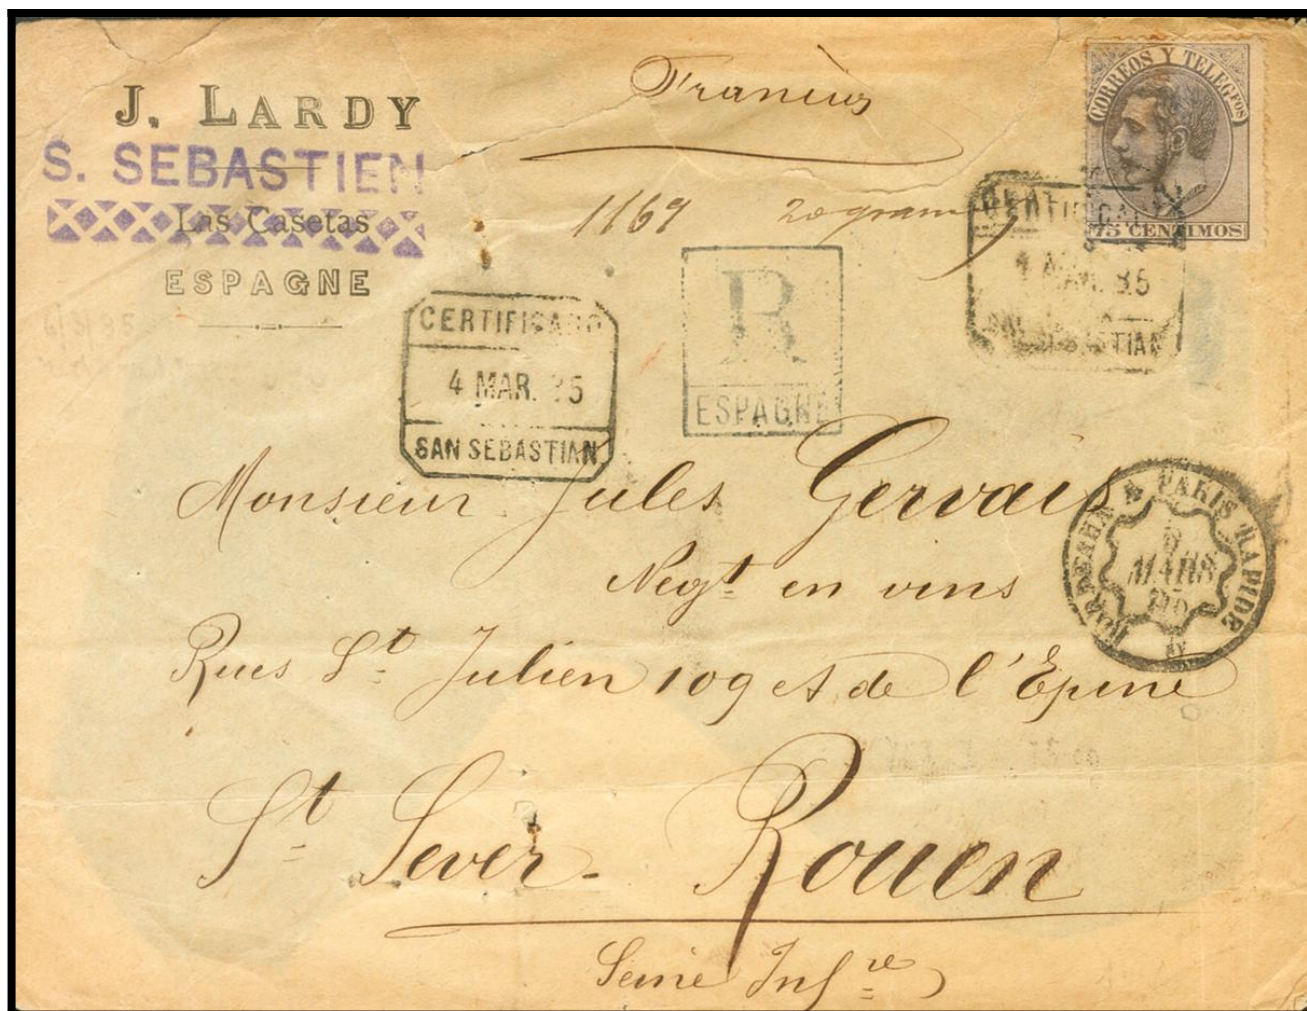 J. LARDY
S. SEBASTIEN
Las Casetas
ESPAGNE
Francus
1169 20 gram
CORREOS Y TELEGFOS
75 CENTIMOS
CERTIFICADO
4 MAR. 85
SAN SEBASTIAN
R
ESPAGNE
CERTIFICA
4 MAR. 85
SAN SEBASTIAN
BORDEAUX A PARIS RAPIDE
MARS
Monsieur Jules Gervais
Negt en vins
Rues St Julien 109 et de l'Epine
St Sever - Rouen
Seine Infre